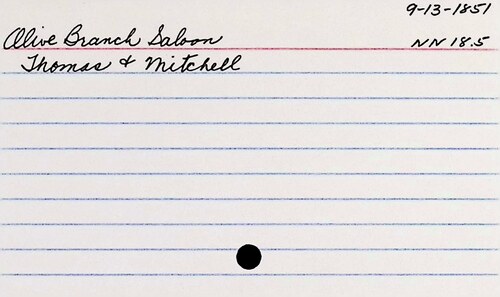 9-13-1851
Olive Branch Saloon NN 18.5
Thomas & Mitchell